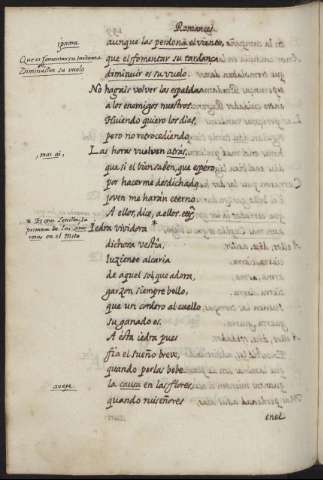 Romances
aunque las perdona el viento,
que el fomentar su tardança
diminuir es su vuelo.
No hagais volver las espaldas
a los enemigos nuestros.
Huiendo quiero los dias,
pero no retrocediendo.
Las horas vuelvan atras,
que si el bien saben, que espero,
por hacerme desdichado
joven me harán eterno.
A ellos, dice, a ellos. etc.
Iedra vividora *
dichosa vestia,
luziendo alcaria
de aquel sol que adora,
garzon siempre bello,
que un cordero al cuello
su ganado es.
A ésta iedra pues
fia el sueño breve,
quando perlas bebe
la causa en las flores,
quando ruiseñores
en el
Que es fomentar su tardança
Diminuir su vuelo
mas ai,
* Es con Sevilla, la
primera de las
en el Moto
aveje